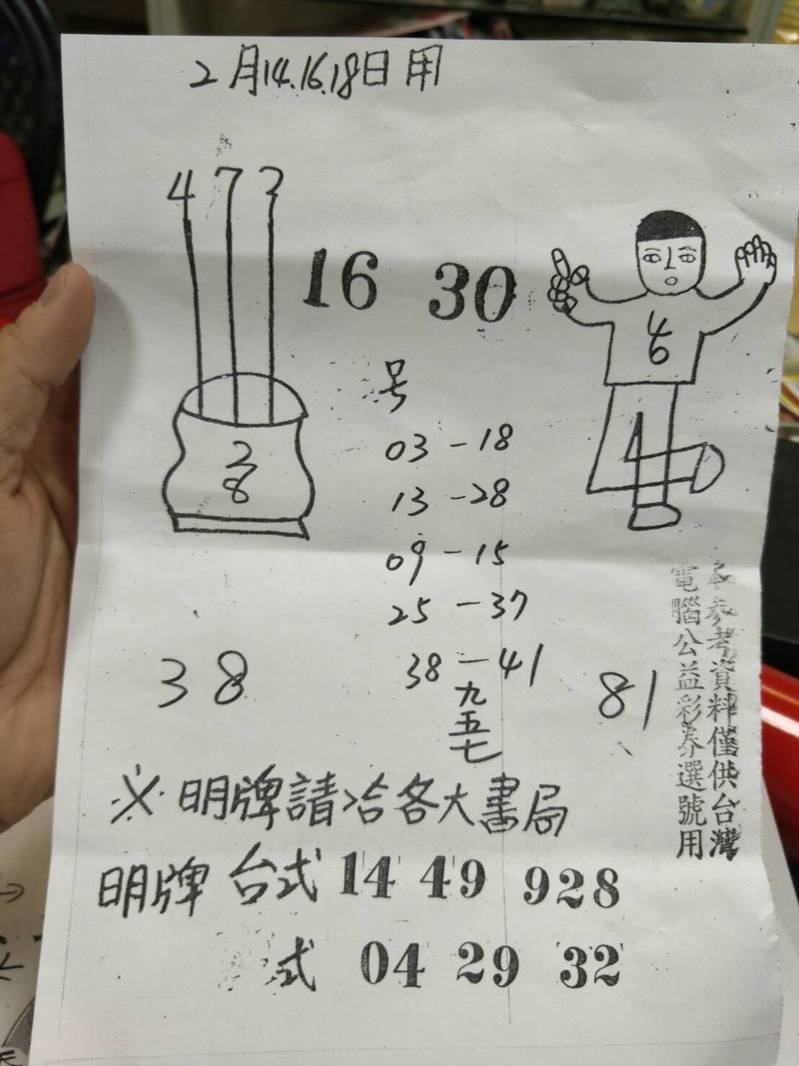 2月14.16.18日用
4 7 2
16 30
4
6
号
03-18
13-28
09-15
25-37
38-41
九五七
2
8
38
81
本參考資料僅供台灣
電腦公益彩券選號用
※明牌請洽各大書局
明牌 台式 14 49 928
式 04 29 32